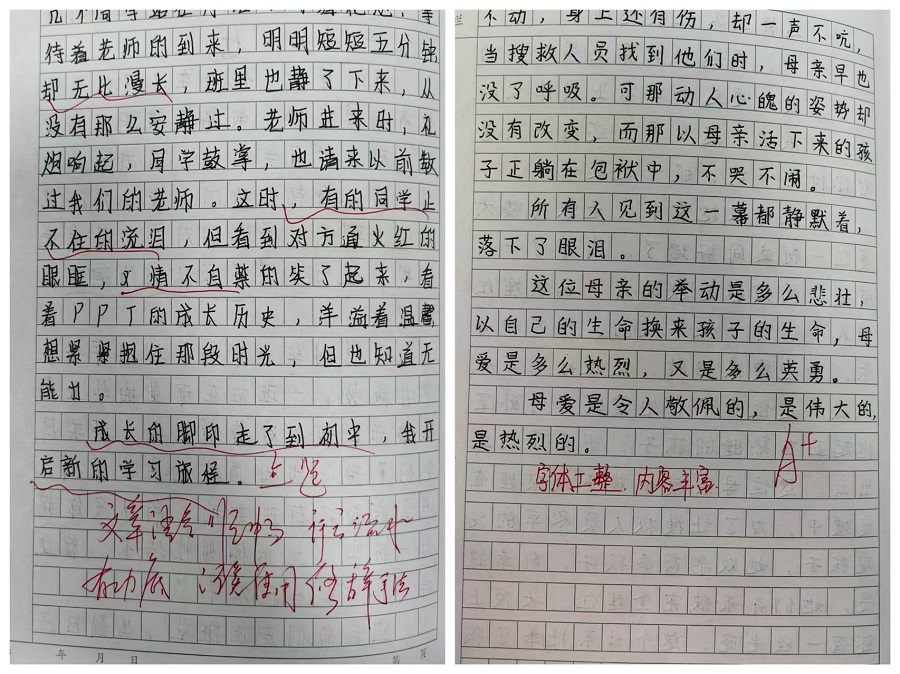 待着老师的到来，明明短短五分钟
却无比漫长，班里也静了下来，从
没有那么安静过。老师进来时，礼
炮响起，同学鼓掌，也请来以前教
过我们的老师。这时，有的同学止
不住的流泪，但看到对方通火红的
眼眶，又情不自禁的笑了起来，看
着PPT的成长历史，洋溢着温馨
想紧紧抱住那段时光，但也知道无
能力。
成长的脚印走了到初中，我开
启新的学习旅程。点题
文章语言流畅 行云流水
有功底 修辞手法
年 月 日
第 页
不动，身上还有伤，却一声不吭，
当搜救人员找到他们时，母亲早也
没了呼吸。可那动人心魄的姿势却
没有改变，而那以母亲活下来的孩
子正躺在包袱中，不哭不闹。
所有人见到这一幕都静默着，
落下了眼泪。
这位母亲的举动是多么悲壮，
以自己的生命换来孩子的生命，母
爱是多么热烈，又是多么英勇。
母爱是令人敬佩的，是伟大的，
是热烈的。
A+
字体工整 内容丰富